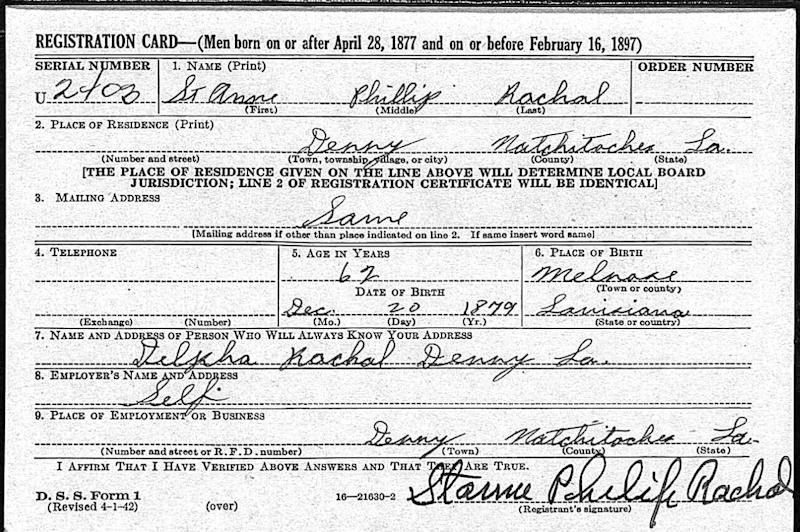 REGISTRATION CARD—(Men born on or after April 28, 1877 and on or before February 16, 1897)
SERIAL NUMBER 1. NAME (Print) ORDER NUMBER
U 2403 St Anne Phillip Rachal
(First) (Middle) (Last)
2. PLACE OF RESIDENCE (Print)
Denny Natchitoches La.
(Number and street) (Town, township, village, or city) (County) (State)
[THE PLACE OF RESIDENCE GIVEN ON THE LINE ABOVE WILL DETERMINE LOCAL BOARD
JURISDICTION; LINE 2 OF REGISTRATION CERTIFICATE WILL BE IDENTICAL]
3. MAILING ADDRESS
Same
[Mailing address if other than place indicated on line 2. If same insert word same]
4. TELEPHONE 5. AGE IN YEARS 6. PLACE OF BIRTH
62 Melrose
DATE OF BIRTH (Town or county)
Dec. 20 1879 Louisiana
(Exchange) (Number) (Mo.) (Day) (Yr.) (State or country)
7. NAME AND ADDRESS OF PERSON WHO WILL ALWAYS KNOW YOUR ADDRESS
Delpha Rachal Denny La.
8. EMPLOYER'S NAME AND ADDRESS
Self
9. PLACE OF EMPLOYMENT OR BUSINESS
Denny Natchitoches La.
(Number and street or R. F. D. number) (Town) (County) (State)
I AFFIRM THAT I HAVE VERIFIED ABOVE ANSWERS AND THAT THEY ARE TRUE.
D. S. S. Form 1 Stanne Philip Rachal
(Revised 4-1-42) (over) 16—21630-2 (Registrant's signature)